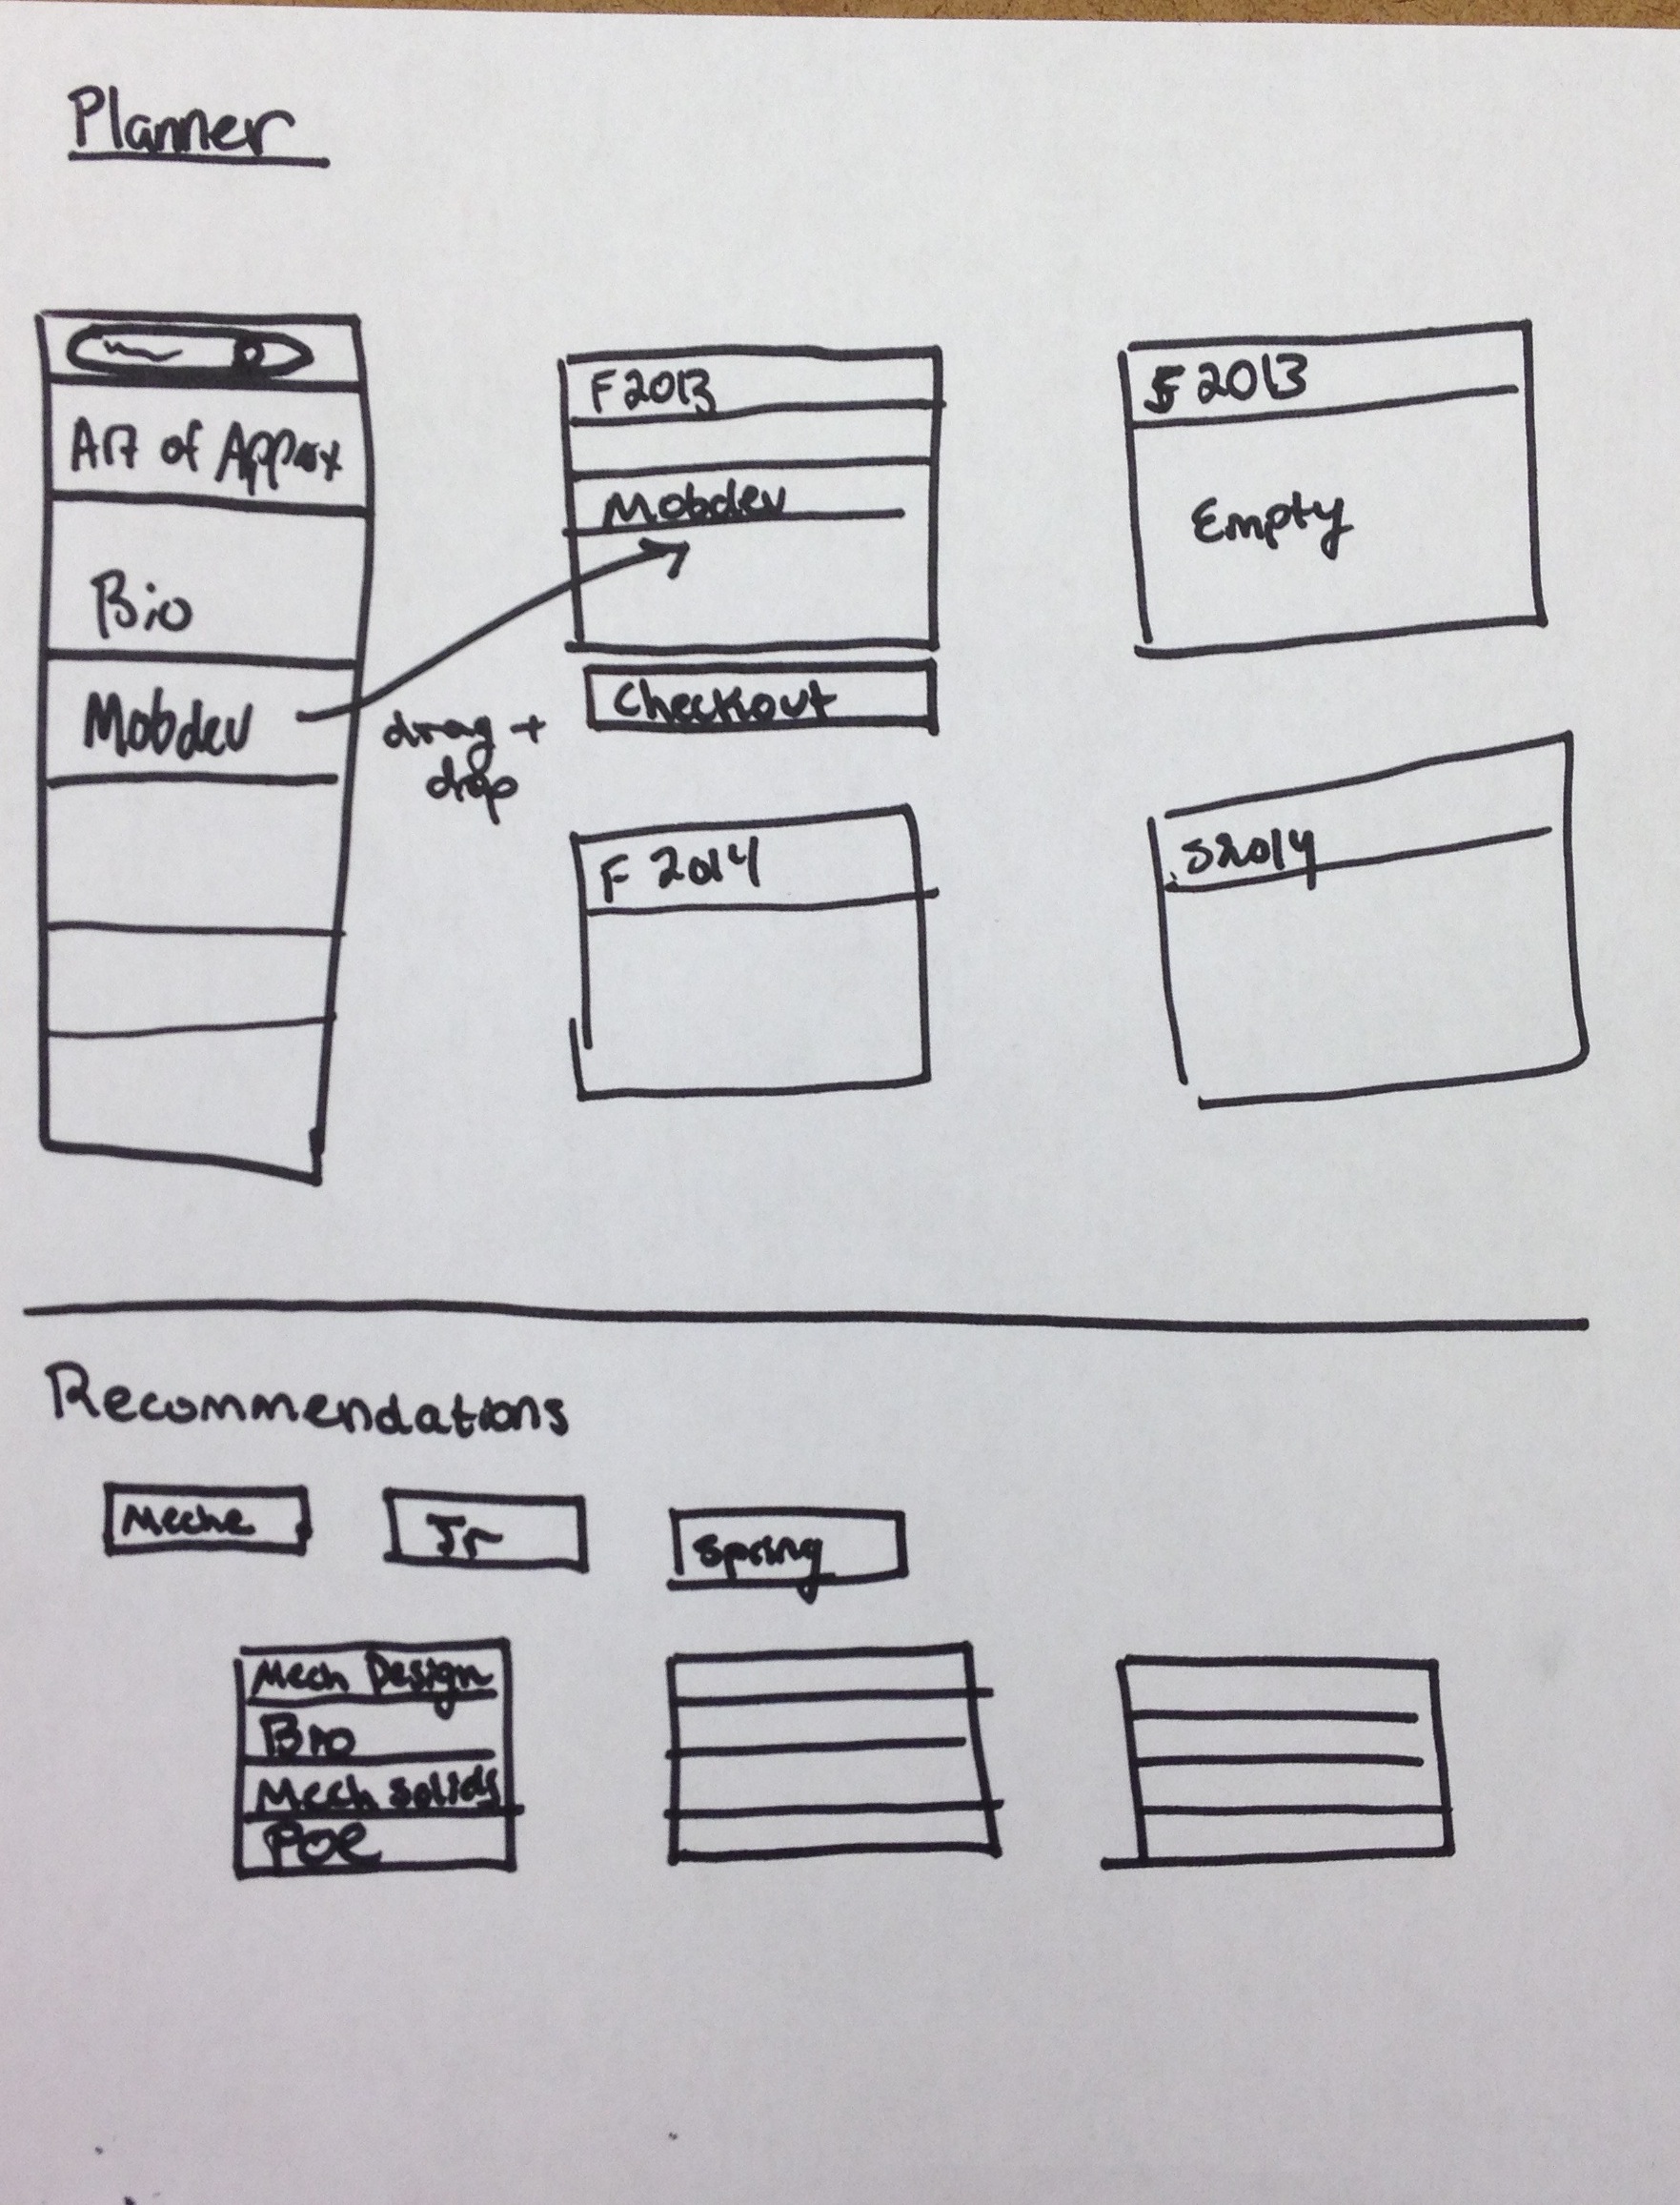 Planner
Art of Approx
Bio
Mobdev
drag +
drop
F 2013
Mobdev
Checkout
2013
Empty
F 2014
S2014
Recommendations
Meche
Jr
Spring
Mech Design
Bio
Mech solids
POE